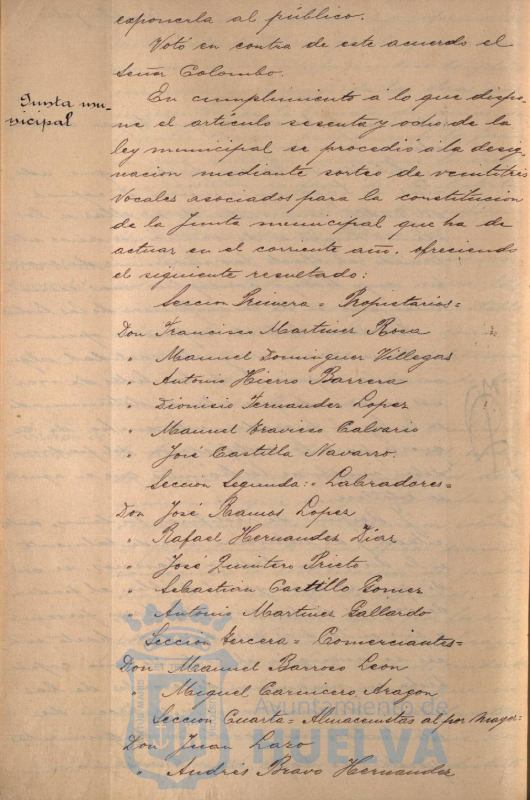 exponerla al público.
Votó en contra de este acuerdo el
Señor Colombo.
Junta mu-
nicipal
En cumplimiento á lo que dispo-
ne el artículo sesenta y ocho de la
ley municipal se procedió á la desig-
nacion mediante sorteo de veintitres
Vocales asociados para la constitucion
de la Junta municipal que ha de
actuar en el corriente año, ofreciendo
el siguiente resultado:
Seccion Primera = Propietarios=
Don Francisco Martinez Rosa
" Manuel Dominguez Villegas
" Antonio Hierro Barrera
" Dionisio Fernandez Lopez
" Manuel Gravioso Calvario
" José Castilla Navarro.
Seccion Segunda:= Labradores=
Don José Ramos Lopez
" Rafael Hernandez Diaz
" José Quintero Prieto
" Sebastian Castillo Gomez
" Antonio Martinez Gallardo
Seccion Tercera = Comerciantes=
Don Manuel Barroso Leon
" Miguel Carnicero Aragon
Seccion Cuarta = Almacenistas al por mayor=
Don Juan Lazo
" Andrés Bravo Hernandez
Ayuntamiento de
HUELVA